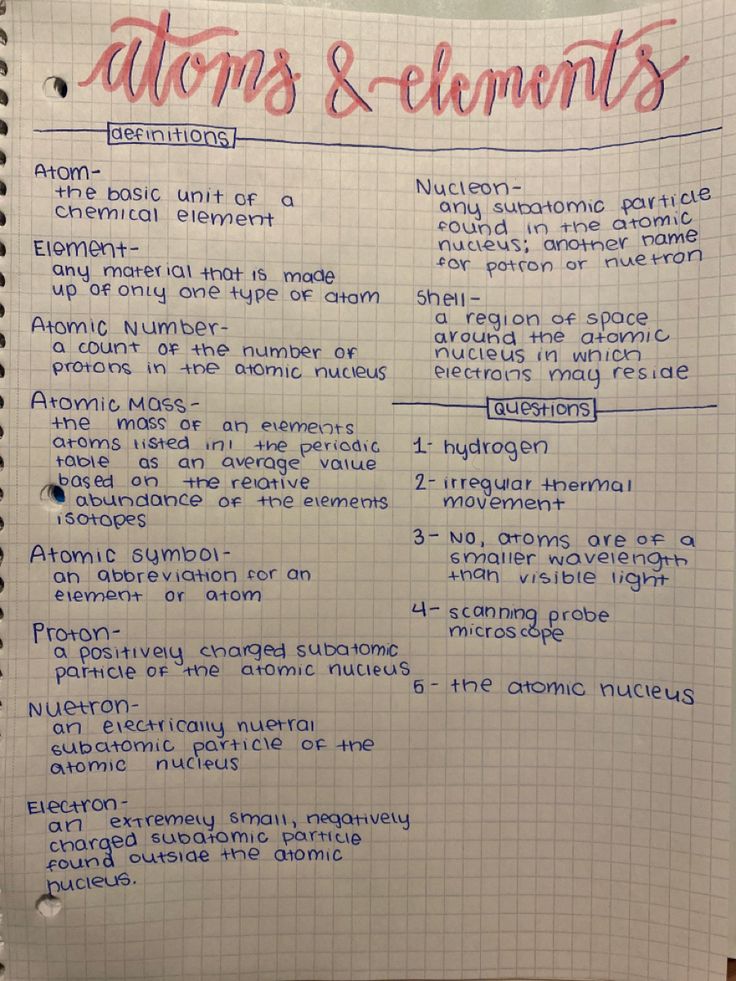 atoms & elements
definitions
Atom-
the basic unit of a
chemical element
Element-
any material that is made
up of only one type of atom
Atomic Number-
a count of the number of
protons in the atomic nucleus
Atomic Mass-
the mass of an elements
atoms listed in! the periodic
table as an average value
based on the relative
abundance of the elements
isotopes
Atomic symbol-
an abbreviation for an
element or atom
Proton-
a positively charged subatomic
particle of the atomic nucleus
Nuetron-
an electrically nuetral
subatomic particle of the
atomic nucleus
Electron-
an extremely small, negatively
charged subatomic particle
found outside the atomic
nucleus.
Nucleon-
any subatomic particle
found in the atomic
nucleus; another name
for potron or nuetron
Shell-
a region of space
around the atomic
nucleus in which
electrons may reside
questions
1- hydrogen
2- irregular thermal
movement
3- No, atoms are of a
smaller wavelength
than visible light
4- scanning probe
microscope
5- the atomic nucleus